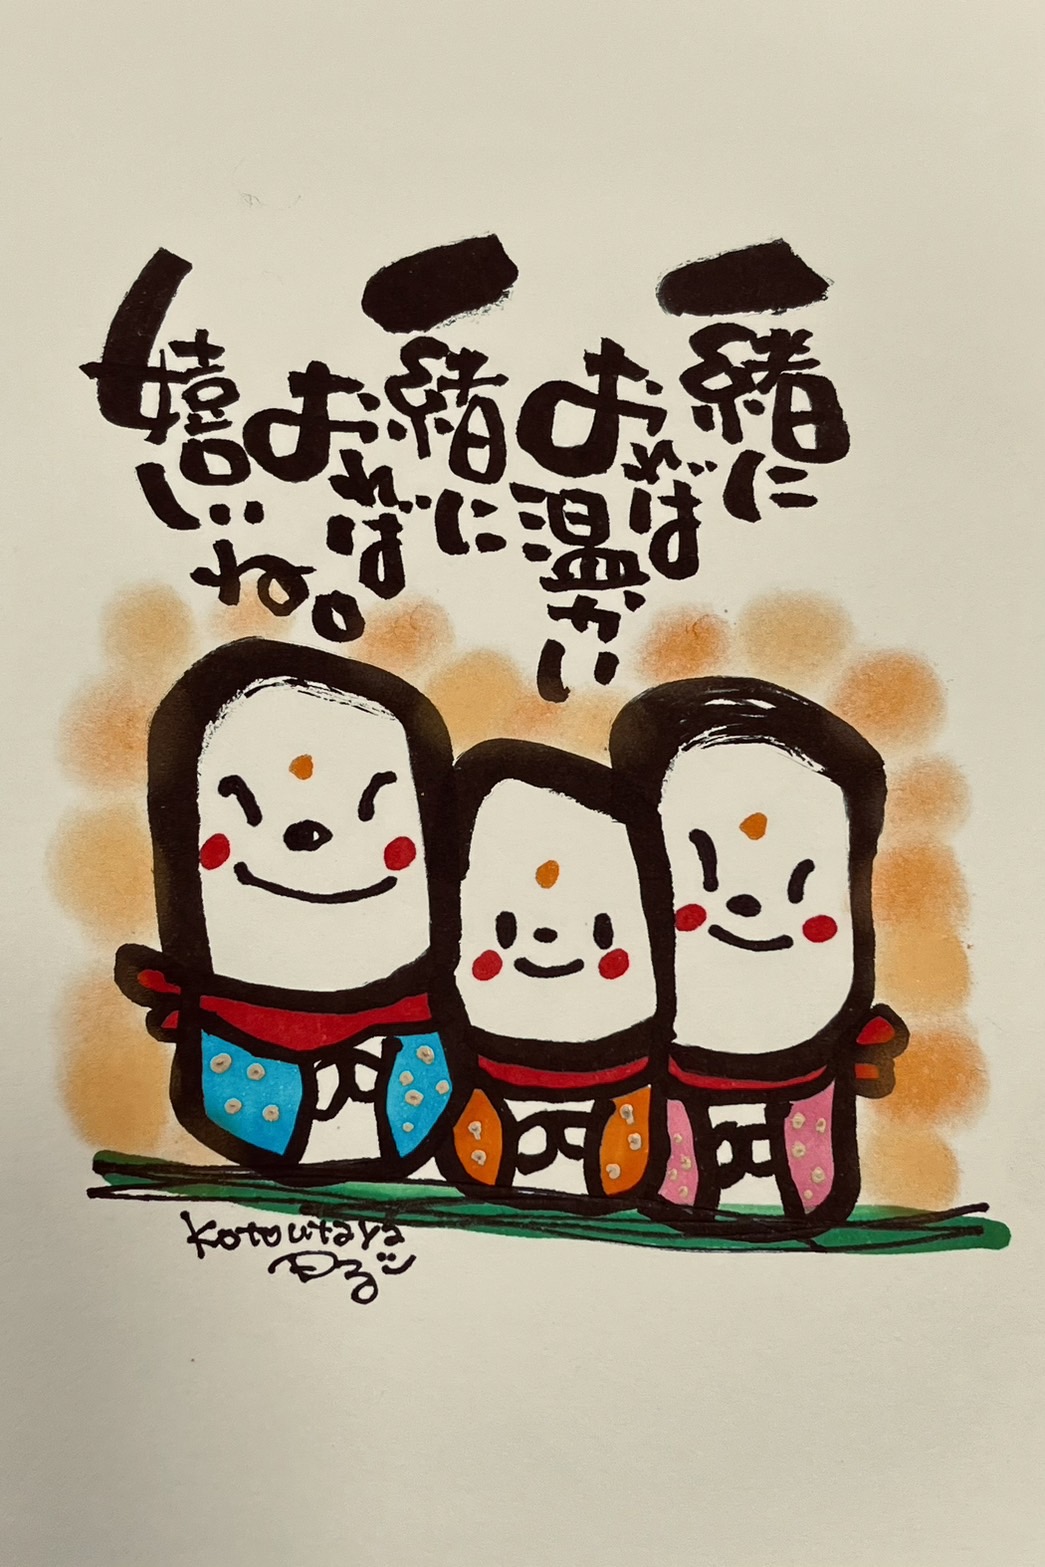 一緒に
おれば
温かい
一緒に
おれば
嬉しい
ね。
Kotoutaya